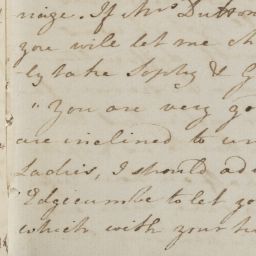 riage. If Mrs Dutton
you will let me ch
ly take Sophy & G
"You are very go
are inclined to un
Ladies, I should ad
Edgecumbe to let go
which with your hu